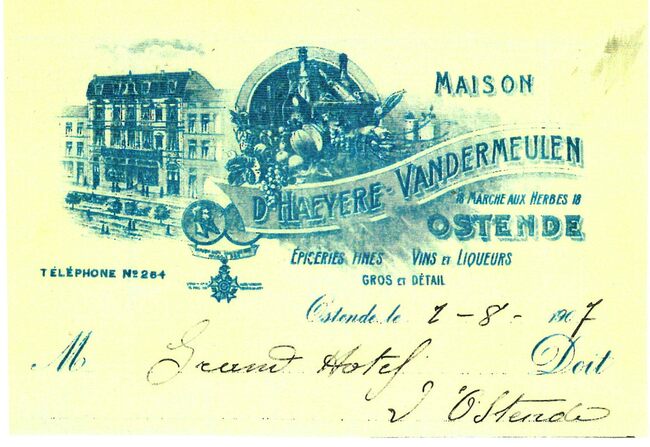 MAISON
D'HAEYERE-VANDERMEULEN
18 MARCHÉ AUX HERBES 18
OSTENDE
ÉPICERIES FINES VINS ET LIQUEURS
GROS ET DÉTAIL
TÉLÉPHONE Nº 264
Ostende, le 2-8-1907
M Grand Hotel Doit
d'Ostende